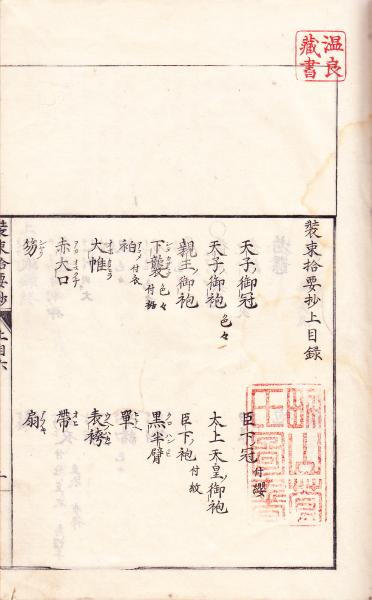 温良
藏書
裝束拾要抄上目録
天子ノ御冠
臣下ノ冠 付纓
天子ノ御袍 色々
太上天皇ノ御袍
親王ノ御袍
臣下ノ袍 付紋
下襲 色々 付裾
黒半臂
袙 付衣
單
大帷
表袴
赤大口
帶
笏
扇
裝束拾要抄 上目六 一